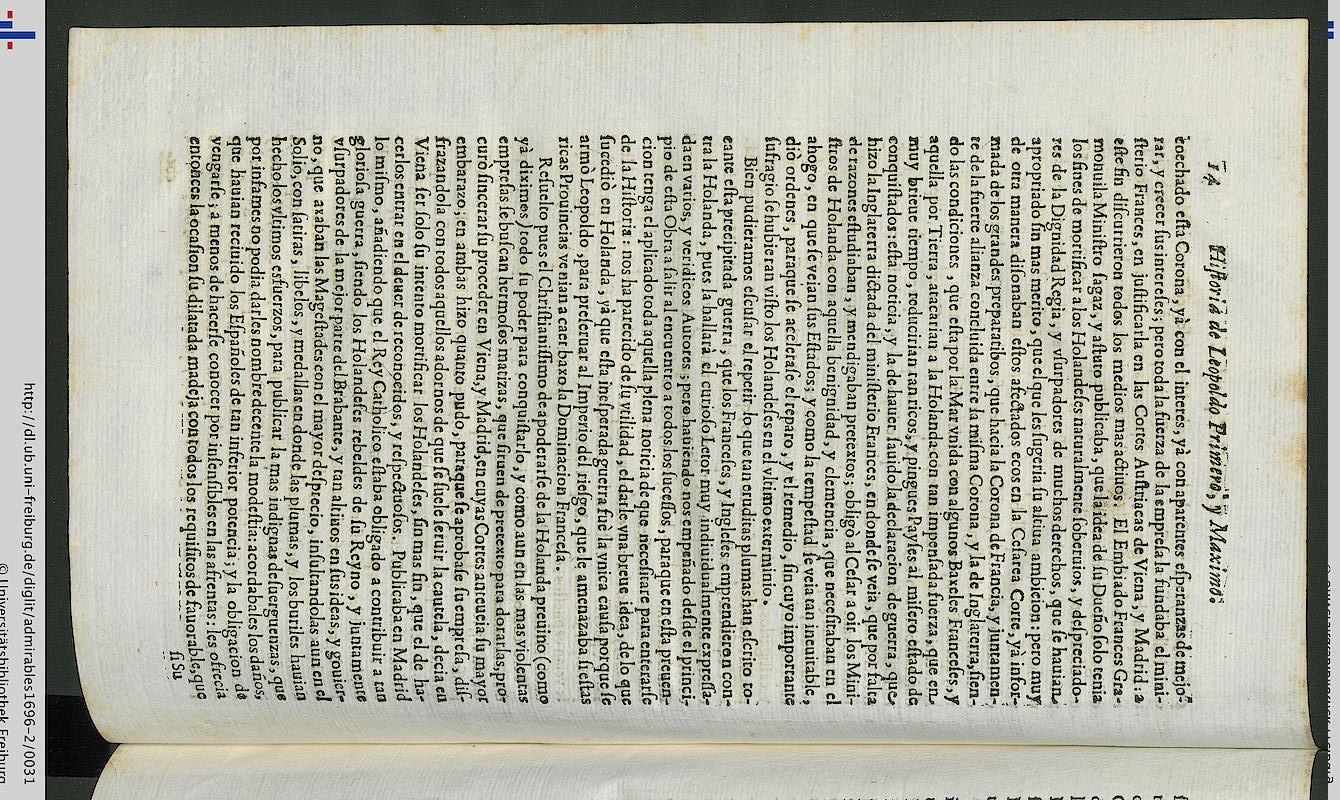 14 Historia de Leopoldo Primero, y Maximo.
coechado esta Corona, yà con el interes, yà con aparentes esperanzas de mejo-
rar, y crecer sus intereses; pero toda la fuerza de la empresa la fundaba el mini-
sterio Frances, en justificarla en las Cortes Austriacas de Viena, y Madrid: a
este fin discurrieron todos los medios mas actiuos. El Embiado Frances Gra-
monuila Ministro sagaz, y astuto publicaba, que la idea de su Dueño solo tenia
los fines de mortificar a los Holandeses naturalmente soberuios, y despreciado-
res de la Dignidad Regia, y vsurpadores de muchos derechos, que se hauian
apropriado sin mas merito, que el que les sugeria su altiua ambicion: pero muy
de otra manera disonaban estos afectados ecos en la Cesarea Corte, yà infor-
mada de los grandes preparatibos, que hacia la Corona de Francia, y juntamen-
te de la fuerte alianza concluida entre la misma Corona, y la de Inglaterra, sien-
do las condiciones, que esta por la Mar vnida con algunos Baxeles Franceses, y
aquella por Tierra, atacarian a la Holanda con tan impensada fuerza, que en
muy brieue tiempo, reducirian tan ricos, y pingues Payses al misero estado de
conquistados: esta noticia, y la de hauer sauido la declaracion de guerra, que
hizo la Inglaterra dictada del ministerio Frances, en donde se veia, que por falta
de razones estudiaban, y mendigaban pretextos; obligò al Cesar a oir los Mini-
stros de Holanda con aquella benignidad, y clemencia, que necesitaban en el
ahogo, en que se veian sus Estados; y como la tempestad se veia tan ineuitable,
diò ordenes, paraque se acelerase el reparo, y el remedio, sin cuyo importante
sufragio se hubieran visto los Holandeses en el vltimo exterminio.
Bien pudieramos escusar el repetir lo que tan eruditas plumas han escrito to-
cante esta precipitada guerra, que los Franceses, y Ingleses emprendieron con-
tra la Holanda, pues la hallarà el curioso Letor muy indiuidualmente expresa-
da en varios, y veridicos Autores; pero hauiendonos empeñado desde el princi-
pio de esta Obra a salir al encuentro a todos los sucesos, paraque en esta preuen-
cion tenga el aplicado toda aquella plena noticia de que necesitare para enterarse
de la Historia: nos ha parecido de su vtilidad, el darle vna breue idea, de lo que
sucediò en Holanda, yà que esta inesperada guerra fuè la vnica causa porque se
armò Leopoldo, para preseruar al Imperio del riesgo, que le amenazaba si estas
ricas Prouincias venian a caer baxo la Dominacion Francesa.
Resuelto pues el Christianissimo de apoderarse de la Holanda preuino (como
yà diximos) todo su poder para conquistarlo, y como aun en las mas violentas
empresas se buscan hermosos matizas, que siruen de pretexto para dorarlas, pro-
curò sincerar su proceder en Viena, y Madrid, en cuyas Cortes arecueia su mayor
embarazo; en ambas hizo quanto pudo, paraque se aprobase su empresa, dis-
frazandola con todos aquellos adornos de que se suele seruir la cautela, decia en
Viena ser solo su intento mortificar los Holandeses, sin mas fin, que el de ha-
cerlos entrar en el deuer de reconocerdos, y respectuosos. Publicaba en Madrid
lo mismo, añadiendo que el Rey Catholico estaba obligado a contribuir a tan
gloriosa guerra, siendo los Holandeses rebeldes de su Reyno, y juntamente
vsurpadores de la mejor parte del Brabante, y tan altiuos en sus ideas, y gouier-
no, que axaban las Magestades con el mayor desprecio, insultandolas aun en el
Solio, con satiras, libelos, y medallas en donde las plumas, y los buriles hauian
hecho los vltimos esfuerzos, para publicar la mas indignas desuerguenzas, que
por infames no podia darles nombre decente la modestia: acordabales los daños,
que hauian reciuido los Españoles de tan inferior potencia; y la obligacion de
vengarse, a menos de hacerse conocer por insensibles en las afrentas: les ofrecia
entonces la ocasion su dilatada madeja con todos los requisitos de fauorables, que
si Su
http://dl.ub.uni-freiburg.de/diglit/admirables1696-2/0031
© Universitätsbibliothek Freiburg